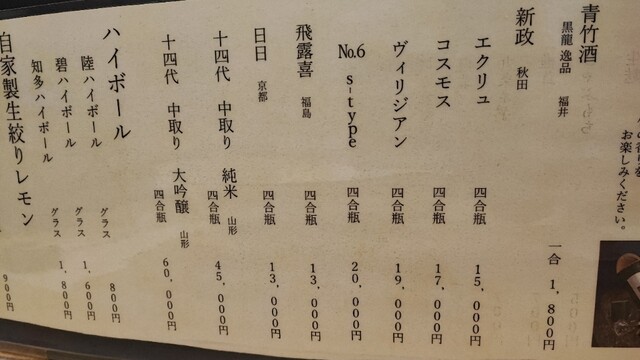 の香りを
お楽しみください。
青竹酒
黒龍 逸品 福井 一合 1,800円
新政 秋田
エクリュ 四合瓶 15,000円
コスモス 四合瓶 17,000円
ヴィリジアン 四合瓶 19,000円
No.6 s-type 四合瓶 20,000円
飛露喜 福島 四合瓶 13,000円
日日 京都 四合瓶 13,000円
十四代 中取り 純米 山形 四合瓶 45,000円
十四代 中取り 大吟醸 山形 四合瓶 60,000円
ハイボール
陸ハイボール グラス 800円
碧ハイボール グラス 1,600円
知多ハイボール グラス 1,800円
自家製生絞りレモン 900円